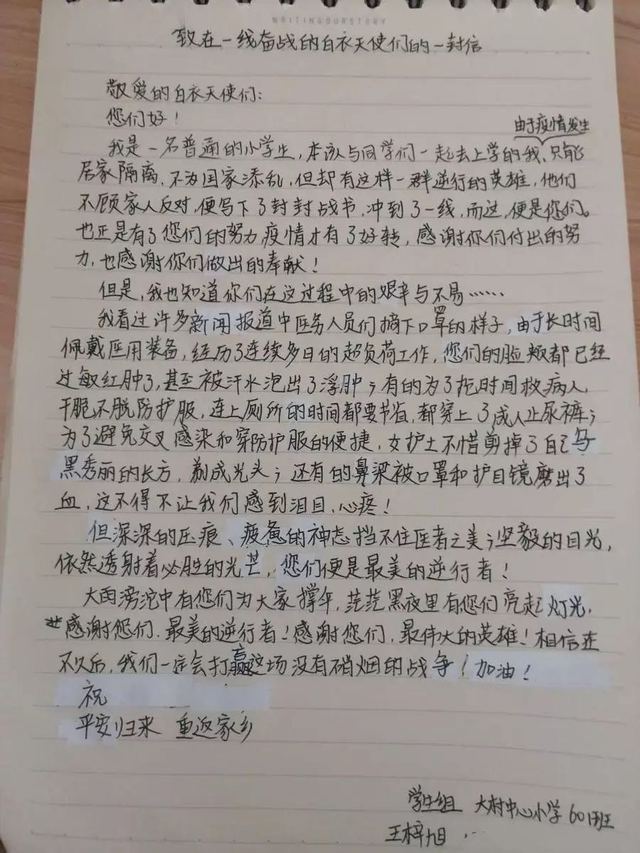 WRITING OUR STORY
致在一线奋战的白衣天使们的一封信
敬爱的白衣天使们:
您们好!
由于疫情发生
我是一名普通的小学生,本该与同学们一起去上学的我,只能
居家隔离,不为国家添乱,但却有这样一群逆行的英雄,他们
不顾家人反对,便写下了封封战书,冲到了一线,而这,便是您们。
也正是有了您们的努力疫情才有了好转,感谢你们付出的努
力,也感谢你们做出的奉献!
但是,我也知道你们在这过程中的艰辛与不易……
我看过许多新闻报道中医务人员们摘下口罩的样子,由于长时间
佩戴医用装备,经历了连续多日的超负荷工作,您们的脸颊都已经
过敏红肿了,甚至被汗水泡出了浮肿;有的为了抢时间救病人,
干脆不脱防护服,连上厕所的时间都要节省,都穿上了成人止尿裤;
为了避免交叉感染和穿防护服的便捷,女护士不惜剪掉了自己乌
黑秀丽的长方,剃成光头;还有的鼻梁被口罩和护目镜磨出了
血,这不得不让我们感到泪目,心疼!
但深深的压痕、疲惫的神态挡不住医者之美;坚毅的目光,
依然透射着必胜的光芒,您们便是最美的逆行者!
大雨滂沱中有您们为大家撑伞,茫茫黑夜里有您们亮起灯光,
感谢您们,最美的逆行者!感谢您们,最伟大的英雄!相信在
不久后,我们一定会打赢这场没有硝烟的战争!加油!
祝
平安归来 重返家乡
学生组 大村中心小学601班
王梓旭